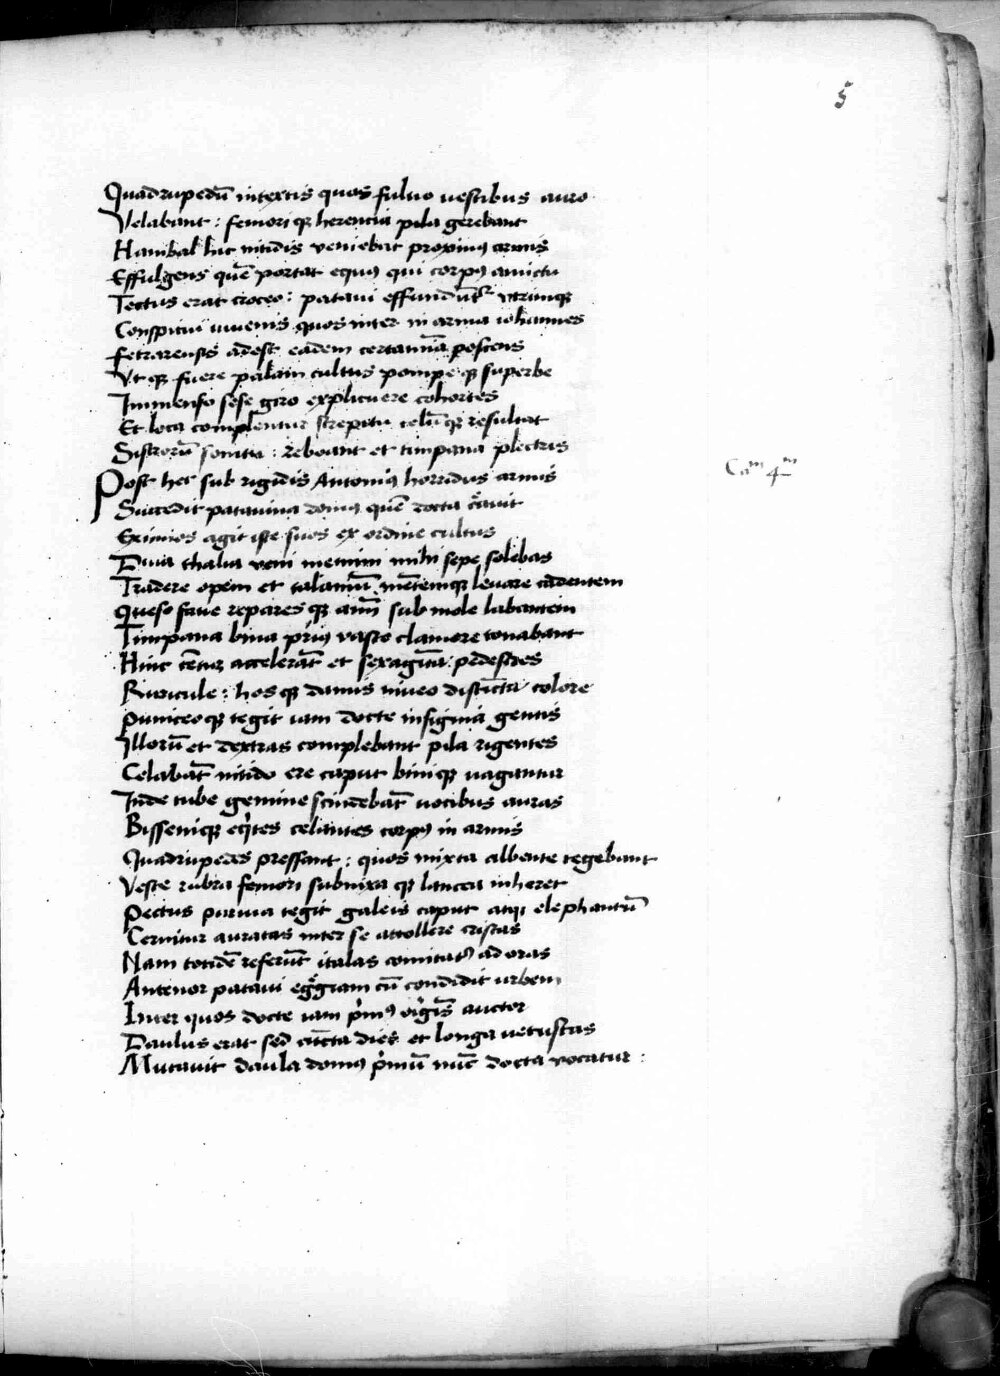 5
Quadrupedū intextis quos fuluo uestibus auro
Velabant : femoriqꝫ herentia pila gerebant
Hanibal hic nitidis veniebat proximꝰ armis
Effulgens quē portat equꝰ qui corpꝰ amictu
Tectus erat croceo : pataui effundūt᷑ vtrinqꝫ
Conspicui iuuenis quos inter in arma iohannes
Ferrarensis adest eadem certamīa poscens
Vt qꝫ fuere palam cultus pompe qꝫ superbe
Immenso sese giro explicuere cohortes
Et loca complentur strepitu celūqꝫ resultat
Sistrorū sonitu : reboant et timpana plectris
Post hec sub rigidis Antoniꝰ horridus armis
Caᵐ 4ᵐ
Succedit patauina domꝰ quē docta c̄auit
Eximios agit iste suos ex ordine cultus
Diua thalia veni memini mihi sepe solebas
Tradere opem et calamū mētemqꝫ leuare cadentem
Queso faue repares qꝫ aīm sub mole labantem
Timpana bina priꝰ vasto clamore tonabant
Hinc cētuꝫ accelerāt et sexagīta pedestres
Ruricule : hos qꝫ damis niueo distīcta colore
puniceoqꝫ tegit iam docte insignia gentis
Illorū et dextras complebant pila rigentes
Celabāt nitido ere caput biniqꝫ uagantur
Inde tube gemine scindebāt uocibus auras
Bisseniqꝫ eq̄tes celantes corpꝰ in armis
Quadrupedes pressant : quos mixta albente tegebant
Veste rubra femori subnixa qꝫ lancea inheret
Pectus parma tegit galeis caput atqꝫ elephantū
Cernitur auratas inter se attollere cristas
Nam totidē referūt italas comitatꝰ ad oras
Antenor pataui eg̊giam cū condidit urbem
Inter quos docte iam pimꝰ origīs auctor
Daulus erat sed cūcta dies et longa uetustas
Mutauit daula domꝰ pimū nūc docta vocatur :